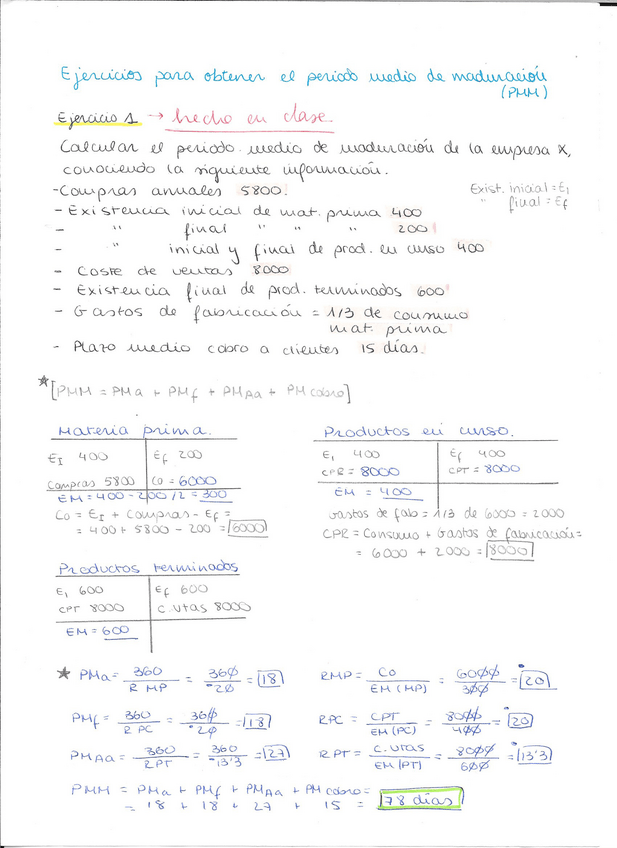 Ejercicios para obtener el periodo medio de maduración
(PMM)
Ejercicio 1 → hecho en clase.
Calcular el periodo medio de maduración de la empresa X,
conociendo la siguiente información.
-Compras anuales 5800.
Exist. inicial = EI
" final = Ef
- Existencia inicial de mat. prima 400
- " final " " " 200
- " inicial y final de prod. en curso 400
- Coste de ventas 8000
- Existencia final de prod. terminados 600
- Gastos de fabricación = 1/3 de consumo
mat. prima
- Plazo medio cobro a clientes 15 días.
* [PMM = PMa + PMf + PMAa + PM cobro]
Materia prima.
EI 400 Ef 200
Compras 5800 Co = 6000
EM = 400 - 200 /2 = 300
Co = EI + compras - Ef =
= 400 + 5800 - 200 = 6000
Productos en curso.
EI 400 Ef 400
CPR = 8000 CPT = 8000
EM = 400
Gastos de fab = 1/3 de 6000 = 2000
CPR = Consumo + Gastos de fabricación =
= 6000 + 2000 = 8000
Productos terminados
EI 600 Ef 600
CPT 8000 C. vtas 8000
EM = 600
* PMa = 360 / R MP = 360 / 20 = 18
RMP = Co / EM (MP) = 6000 / 300 = 20
PMf = 360 / R PC = 360 / 20 = 18
RPC = CPT / EM (PC) = 8000 / 400 = 20
PMAa = 360 / R PT = 360 / 13'3 = 27
R PT = C. vtas / EM (PT) = 8000 / 600 = 13'3
PMM = PMa + PMf + PMAa + PM cobro =
= 18 + 18 + 27 + 15 = 78 días